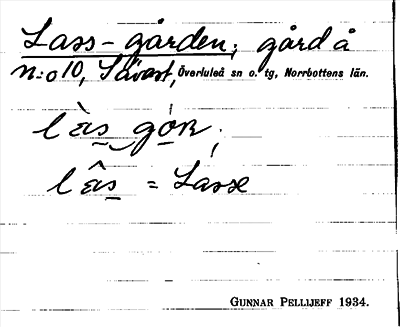 Lass-gården, gård å
n:o 10, Sävast, Överluleå sn o. tg, Norrbottens län.
làs gọ́n,
lâs = Lasse
GUNNAR PELLIJEFF 1934.